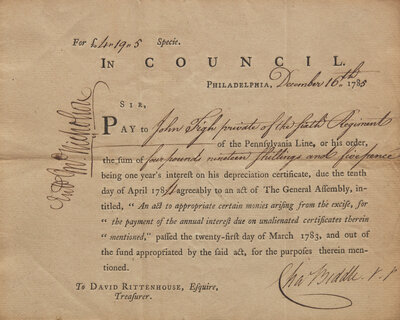 For £4-19-5 Specie.
IN COUNCIL.
PHILADELPHIA, December 16th 1785
SIR,
PAY to John Tigh private of the sixth Regiment
of the Pennsylvania Line, or his order,
the sum of four pounds nineteen shillings and five pence
being one year's interest on his depreciation certificate, due the tenth
day of April 1784 agreeably to an act of The General Assembly, in-
titled, " An act to appropriate certain monies arising from the excise, for
" the payment of the annual interest due on unalienated certificates therein
" mentioned," passed the twenty-first day of March 1783, and out
of the fund appropriated by the said act, for the purposes therein men-
tioned.
Cha Biddle V. P
To DAVID RITTENHOUSE, Esquire,
Treasurer.
Nicholson